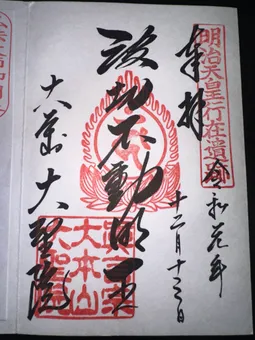 明治天皇行在遺
奉拝
令和元年
十二月十二日
波切不動明王
大本山 大聖院
真言宗
大本山
大聖院